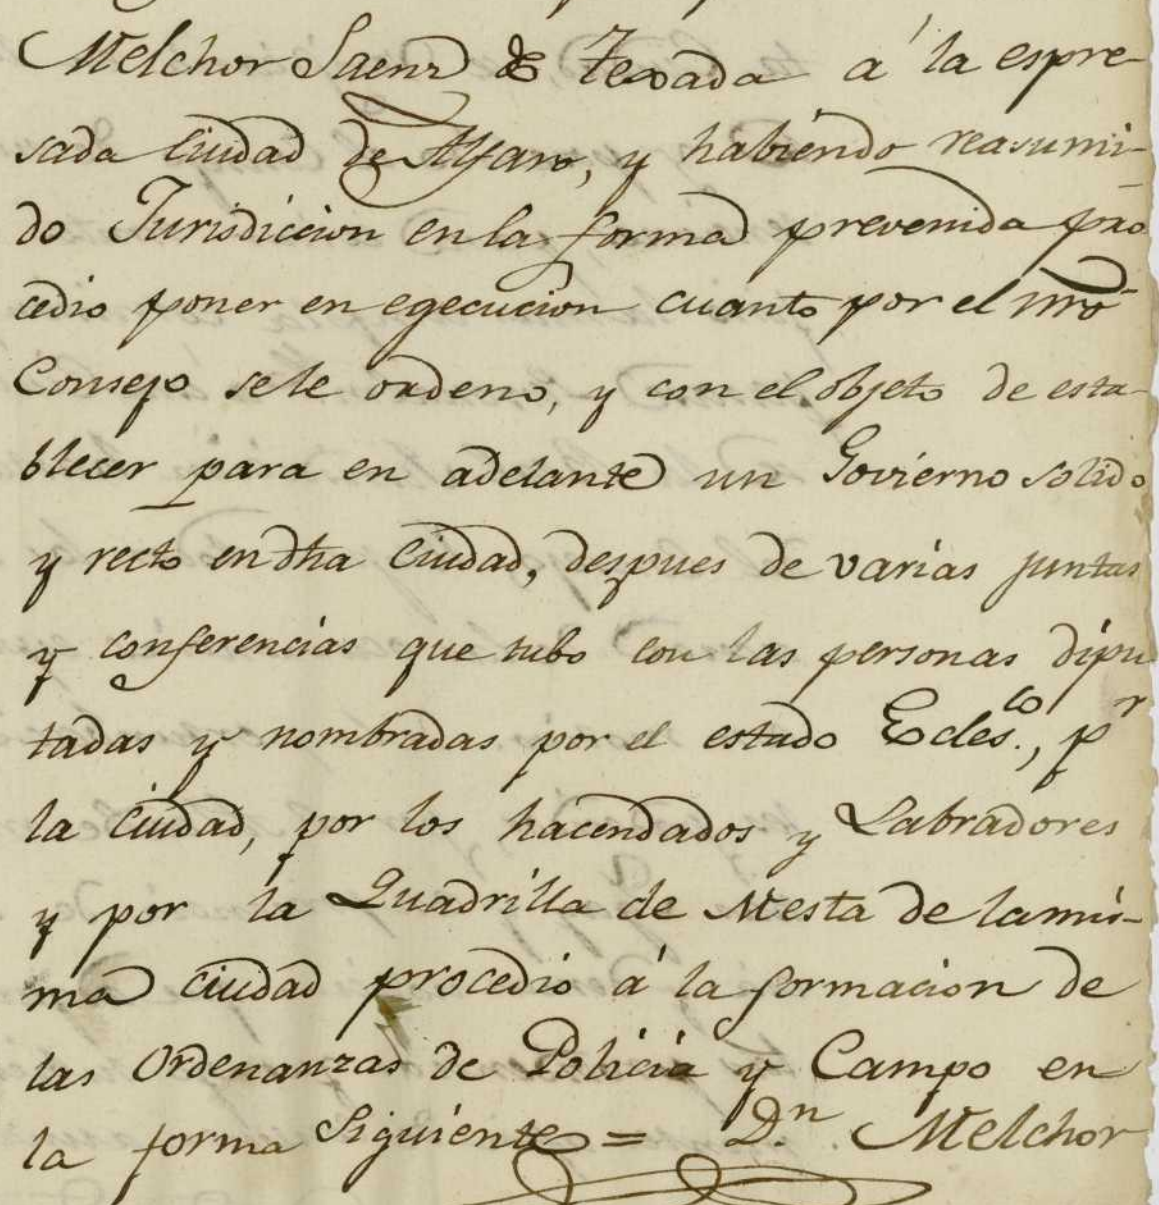 Melchor Saenz de Texada á la espre-
sada Ciudad de Alfaro, y habiendo reasumi-
do Jurisdiccion en la forma prevenida pro
cedio poner en egecucion cuanto por el mró
Consejo se le ordeno, y con el objeto de esta-
blecer para en adelante un Govierno solido
y recto en dha Ciudad, despues de varias juntas
y conferencias que tubo con las personas dipu
tadas y nombradas por el estado Ecles.co, pr
la Ciudad, por los hacendados y Labradores
y por la Quadrilla de Mesta de la mis-
ma Ciudad procedio á la formacion de
las Ordenanzas de Policia y Campo en
la forma Siguiente = D.n Melchor